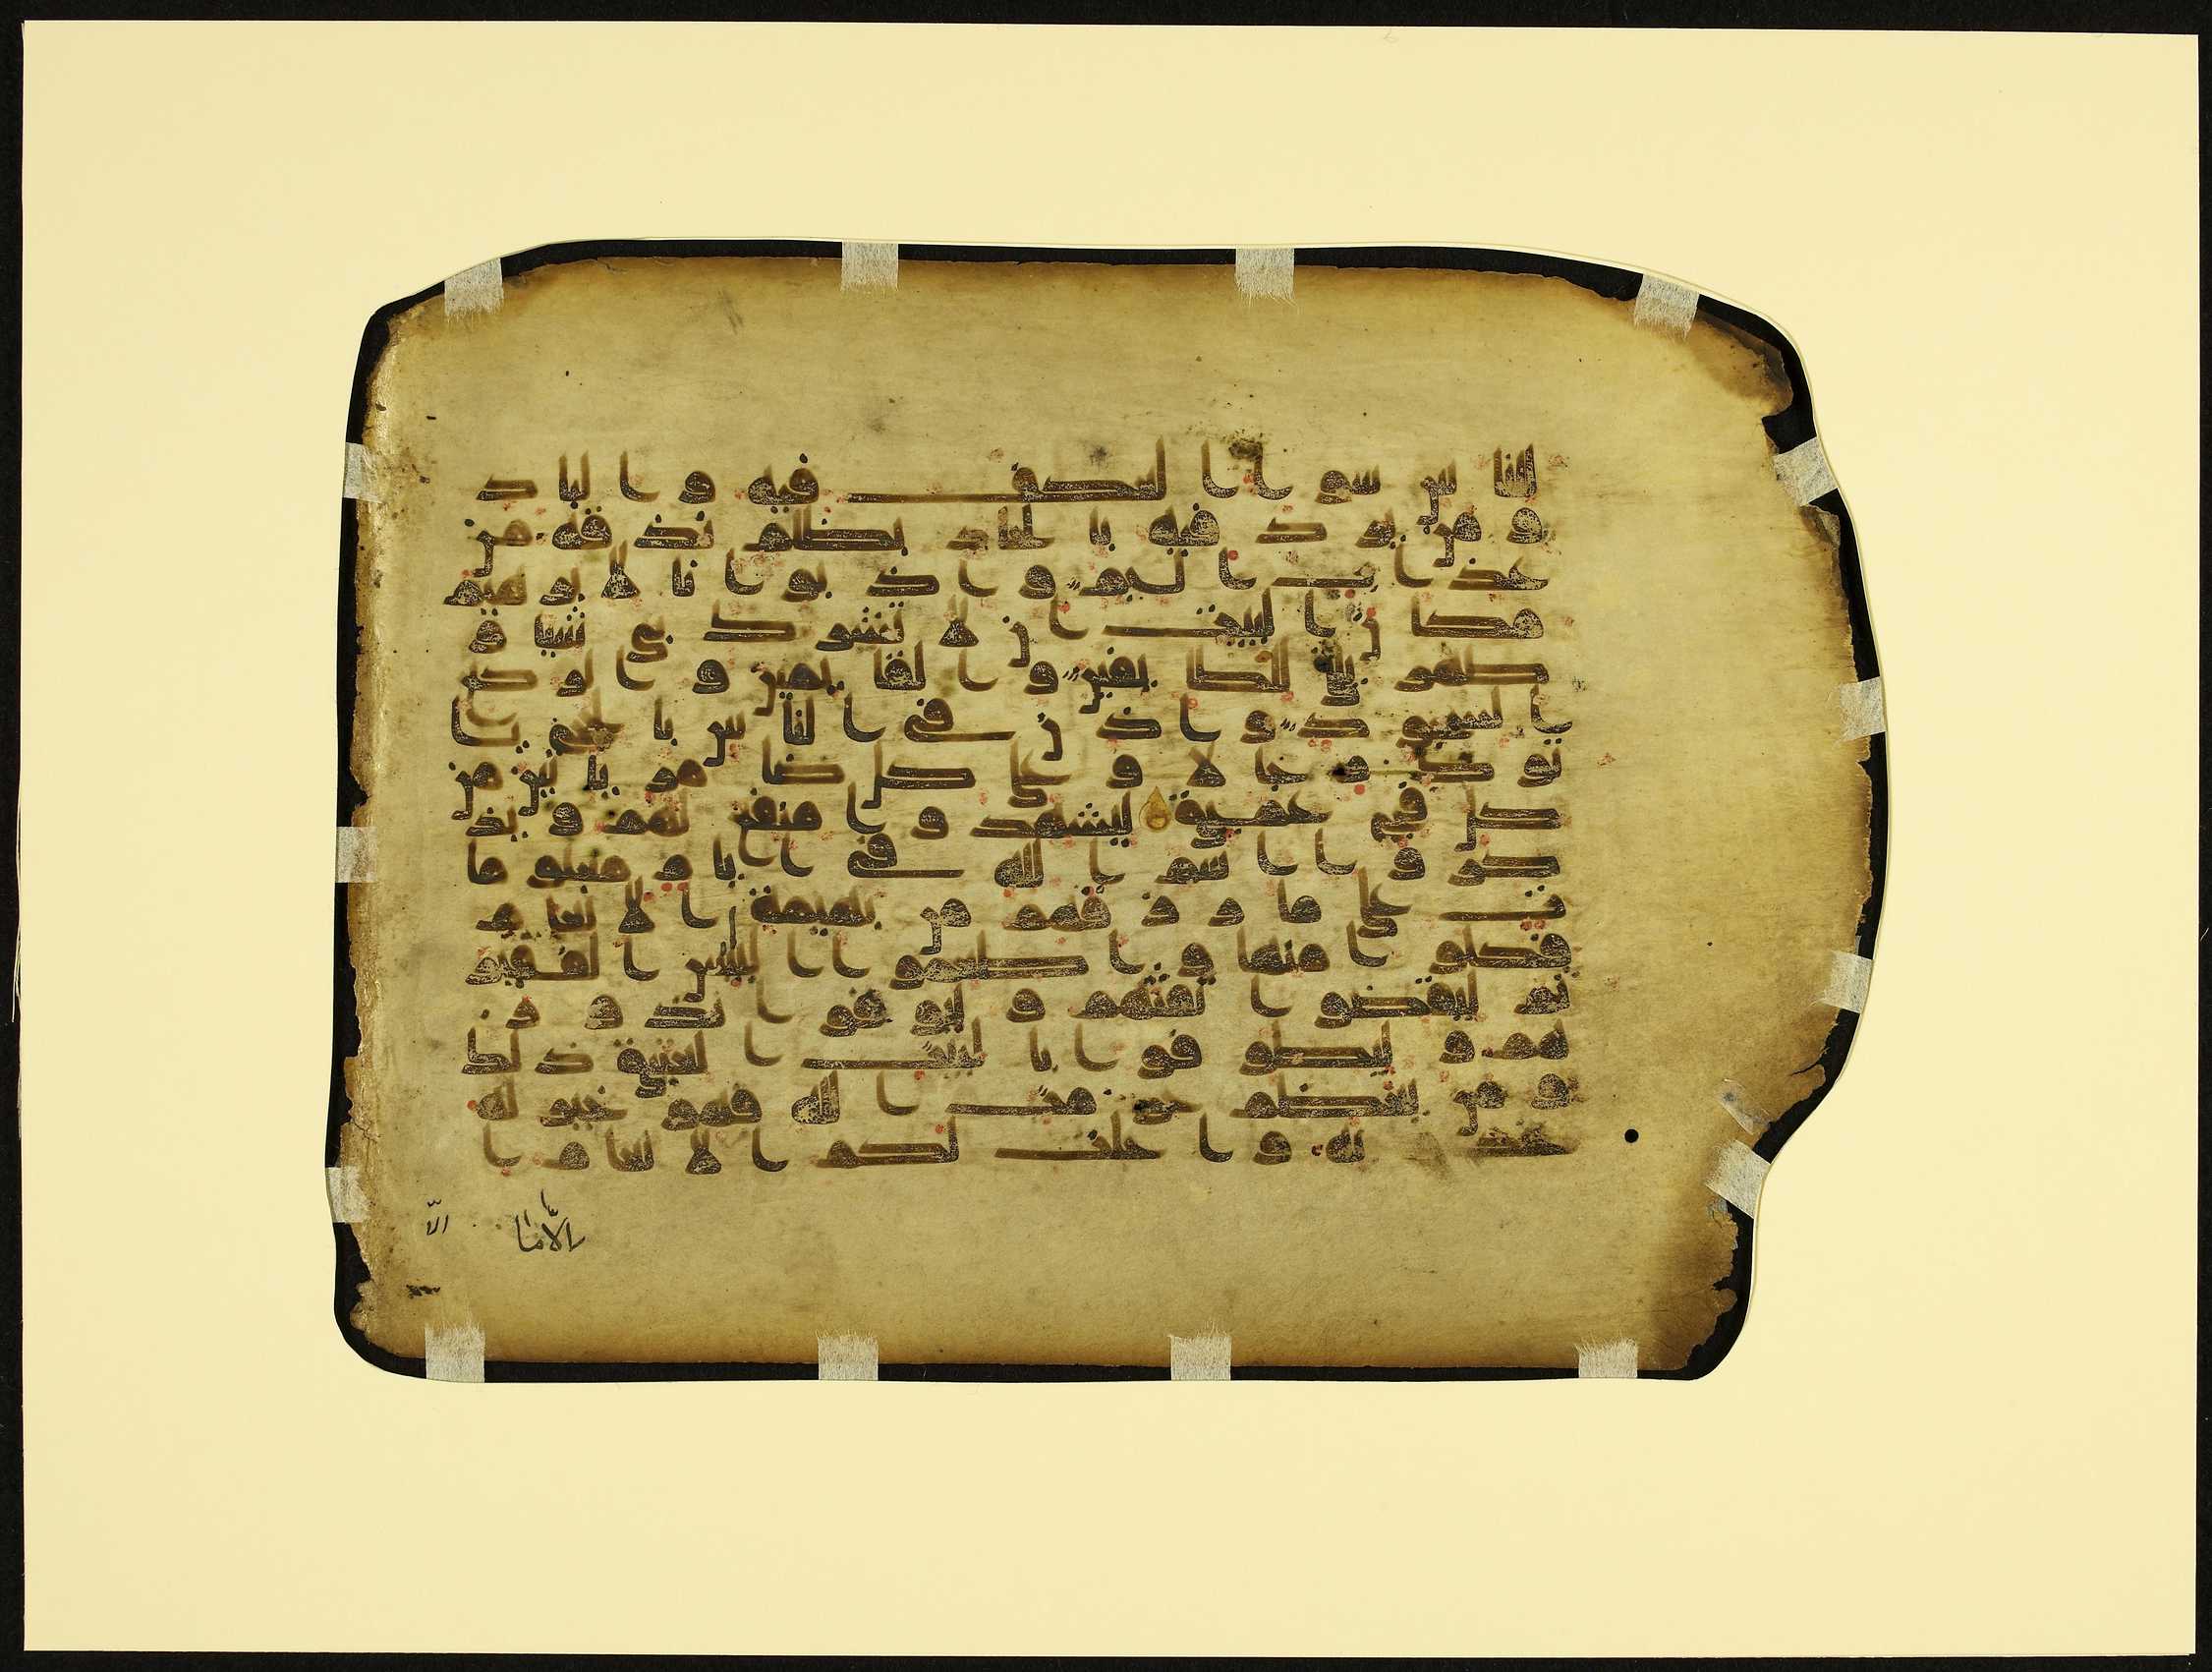 للناس سوا العكف فيه والباد
و من يرد فيه بالحاد بظلم نذقه من
عذاب اليم واذ بوانا لابرهيم
مكان البيت ان لا تشرك بي شيا و
طهر بيتي للطائفين والقائمين والركع
السجود واذن في الناس بالحج يا
توك رجالا وعلى كل ضامر ياتين من
كل فج عميق ليشهدوا منفع لهم ويذ
كروا اسم الله في ايام معلوما
ت على ما رزقهم من بهيمة الانعام
فكلوا منها واطعموا البائس الفقير
ثم ليقضوا تفثهم وليوفوا نذور
هم وليطوفوا بالبيت العتيق ذلك
ومن يعظم حرمت الله فهو خير له
عند ربه واحلت لكم الانعام ا
الّا ما الّا